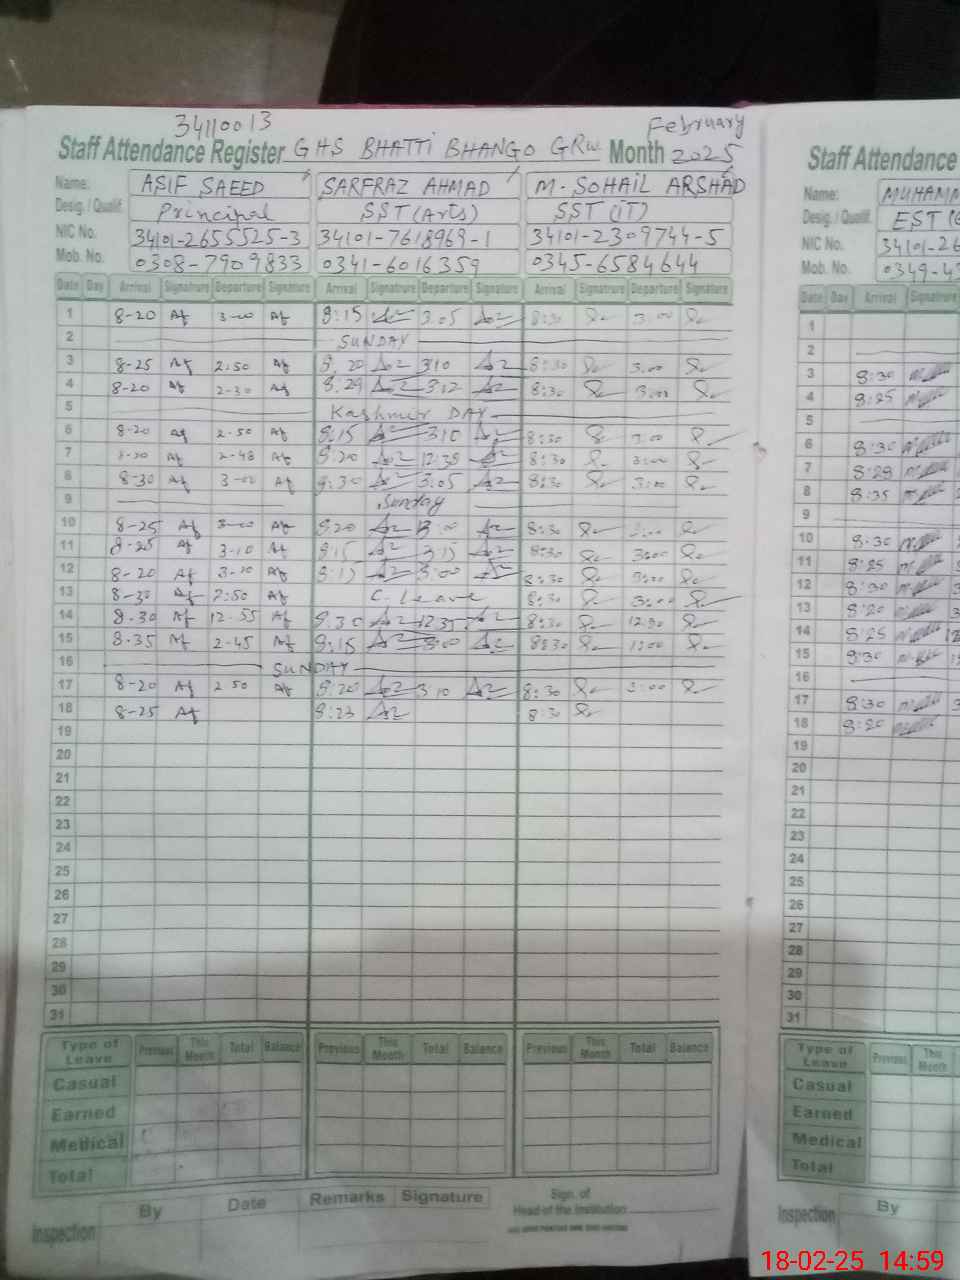 34110013
Staff Attendance Register GHS BHATTI BHANGO GRW Month February 2025
Name: ASIF SAEED SARFRAZ AHMAD M. SOHAIL ARSHAD
Desig. / Qualif. Principal SST (Arts) SST (IT)
NIC No. 34101-2655525-3 34101-7618969-1 34101-2309744-5
Mob. No. 0308-7909833 0341-6016359 0345-6584644
Date Day Arrival Signatrure Departure Signature Arrival Signatrure Departure Signature Arrival Signatrure Departure Signature
1 8-20 Af 3-00 Af 8:15 3.05 8:30 3:00
2 SUNDAY
3 8-25 Af 2:50 Af 8.20 3:10 8:30 3.00
4 8-20 Af 2-30 Af 8:29 3:12 8:30 3:00
5 Kashmir DAY
6 8-20 Af 2-50 Af 8:15 3:10 8:30 3:00
7 8-20 Af 2-48 Af 8:20 12:35 8:30 3:00
8 8-30 Af 3-00 Af 8:30 3:05 8:30 3:00
9 Sunday
10 8-25 Af 3-00 Af 8:20 3:00 8:30 3:00
11 8-25 Af 3-10 Af 8:15 3:15 8:30 3:00
12 8-20 Af 3-10 Af 8:15 3:00 8:30 3:00
13 8-30 Af 2:50 Af C. Leave 8:30 3:00
14 8-30 Af 12-55 Af 8.30 12:35 8:30 12:30
15 8-35 Af 2-45 Af 8:15 3:00 8:30 1:00
16 SUNDAY
17 8-20 Af 2 50 Af 8:20 3:10 8:30 3:00
18 8-25 Af 8:23 8:30
19
20
21
22
23
24
25
26
27
28
29
30
31
Type of Leave Previous This Month Total Balance Previous This Month Total Balance Previous This Month Total Balance
Casual
Earned
Medical
Total
Inspection By Date Remarks Signature Sign. of Head of the Institution
Staff Attendance
Name: MUHAMM
Desig. / Qualif. EST
NIC No. 34101-26
Mob. No. 0349-4
Date Day Arrival Signatrure
1
2
3 8:30
4 8:25
5
6 8:30
7 8:29
8 8:35
9
10 8:30
11 8:25
12 8:30
13 8:20
14 8:25
15 8:30
16
17 8:30
18 8:20
19
20
21
22
23
24
25
26
27
28
29
30
31
Type of Leave Previous This Month
Casual
Earned
Medical
Total
Inspection By
18-02-25 14:59